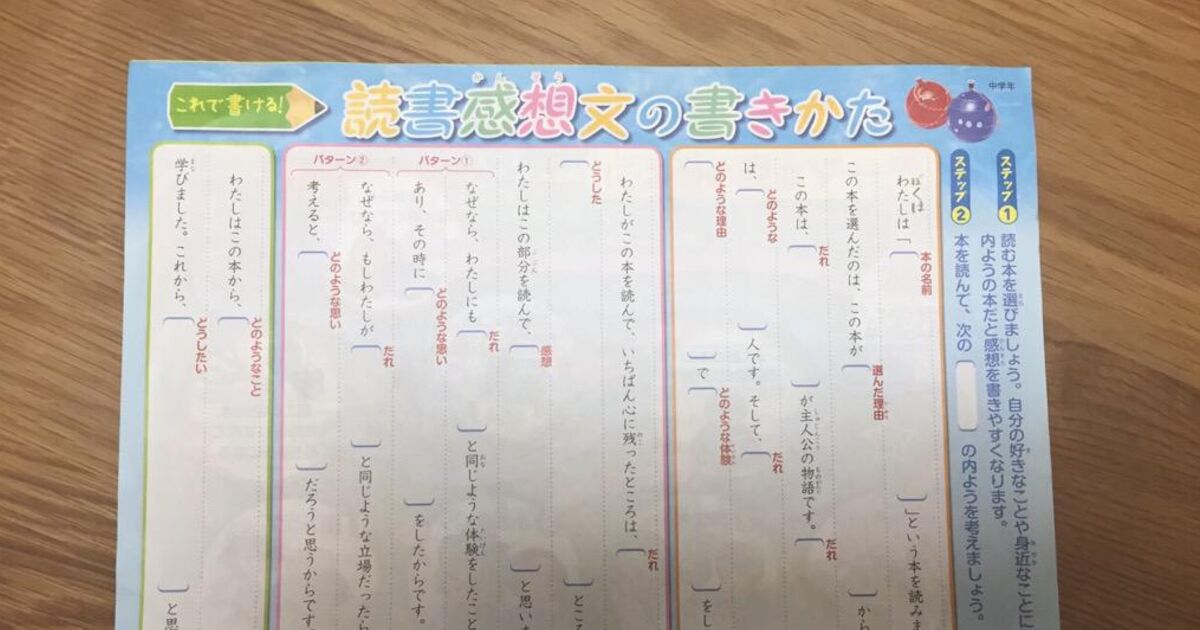 これで書ける!
読書感想文の書きかた
かんそう
中学年
ステップ1
読む本を選びましょう。自分の好きなことや身近なことに
内ようの本だと感想を書きやすくなります。
ステップ2
本を読んで、次の の内ようを考えましょう。
ぼくは
わたしは「 」という本を読みま
本の名前
この本を選んだのは、この本が から
選んだ理由
この本は、 が主人公の物語です。
だれ
だれ
は、 人です。そして、
どのような
だれ
で をし
どのような理由
どのような体験
わたしがこの本を読んで、いちばん心に残ったところは、
だれ
とこ
どうした
わたしはこの部分を読んで、 と思い
感想
パターン①
なぜなら、わたしにも と同じような体験をしたこと
だれ
あり、その時に をしたからです。
どのような思い
パターン②
なぜなら、もしわたしが と同じような立場だったら
だれ
考えると、 だろうと思うからです
どのような思い
わたしはこの本から、
どのようなこと
学びました。これから、 と思
どうしたい